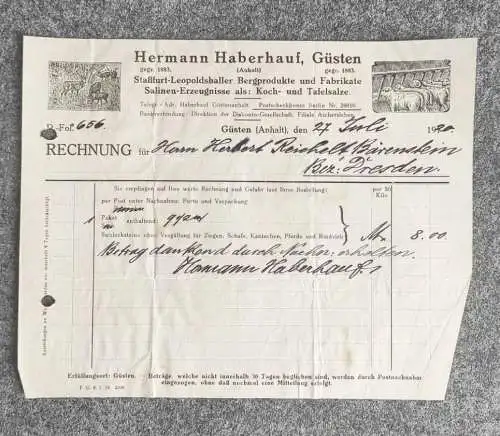 Hermann Haberhauf, Güsten
gegr. 1883. (Anhalt) gegr. 1883.
Staßfurt-Leopoldshaller Bergprodukte und Fabrikate
Salinen-Erzeugnisse als: Koch- und Tafelsalze.
Telegr.-Adr. Haberhauf Güstenanhalt. Postscheckkonto Berlin Nr.
Bankverbindung: Direktion der Diskonto-Gesellschaft, Filiale Aschersleben.
B-Fol. 656. Güsten (Anhalt), den 27 Juli 1920.
RECHNUNG für Herrn Herbert Reichelt Bärenstein
Bez: Dresden.
Sie empfingen auf Ihre werte Rechnung und Gefahr laut Ihrer Bestellung: per 50 Kilo
per Post unter Nachnahme, Porto und Verpackung
1 Paket enthaltend:
Salzlecksteine ohne Vergällung für Ziegen, Schafe, Kaninchen, Pferde und Rindvieh Mk 8.00
Betrag dankend durch Nachn. erhalten.
Hermann Haberhauf
Erfüllungsort: Güsten. - Beträge, welche nicht innerhalb 30 Tagen beglichen sind, werden durch Postnachnahme
eingezogen, ohne daß nochmal eine Mitteilung erfolgt.